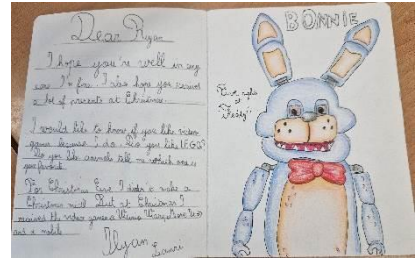 Dear Ryan
I hope you're well in any
case I'm fine. I also hope you received
a lot of presents at Christmas.
I would like to know if you like video
games because I do. Do you like LEGO?
Do you like animals tell me which one is
your favorite.
For Christmas Eve I didn't make a
Christmas meal. But at Christmas I
received the video games
and a mobile
Ilyan
BONNIE
Five nights
at
Freddy's